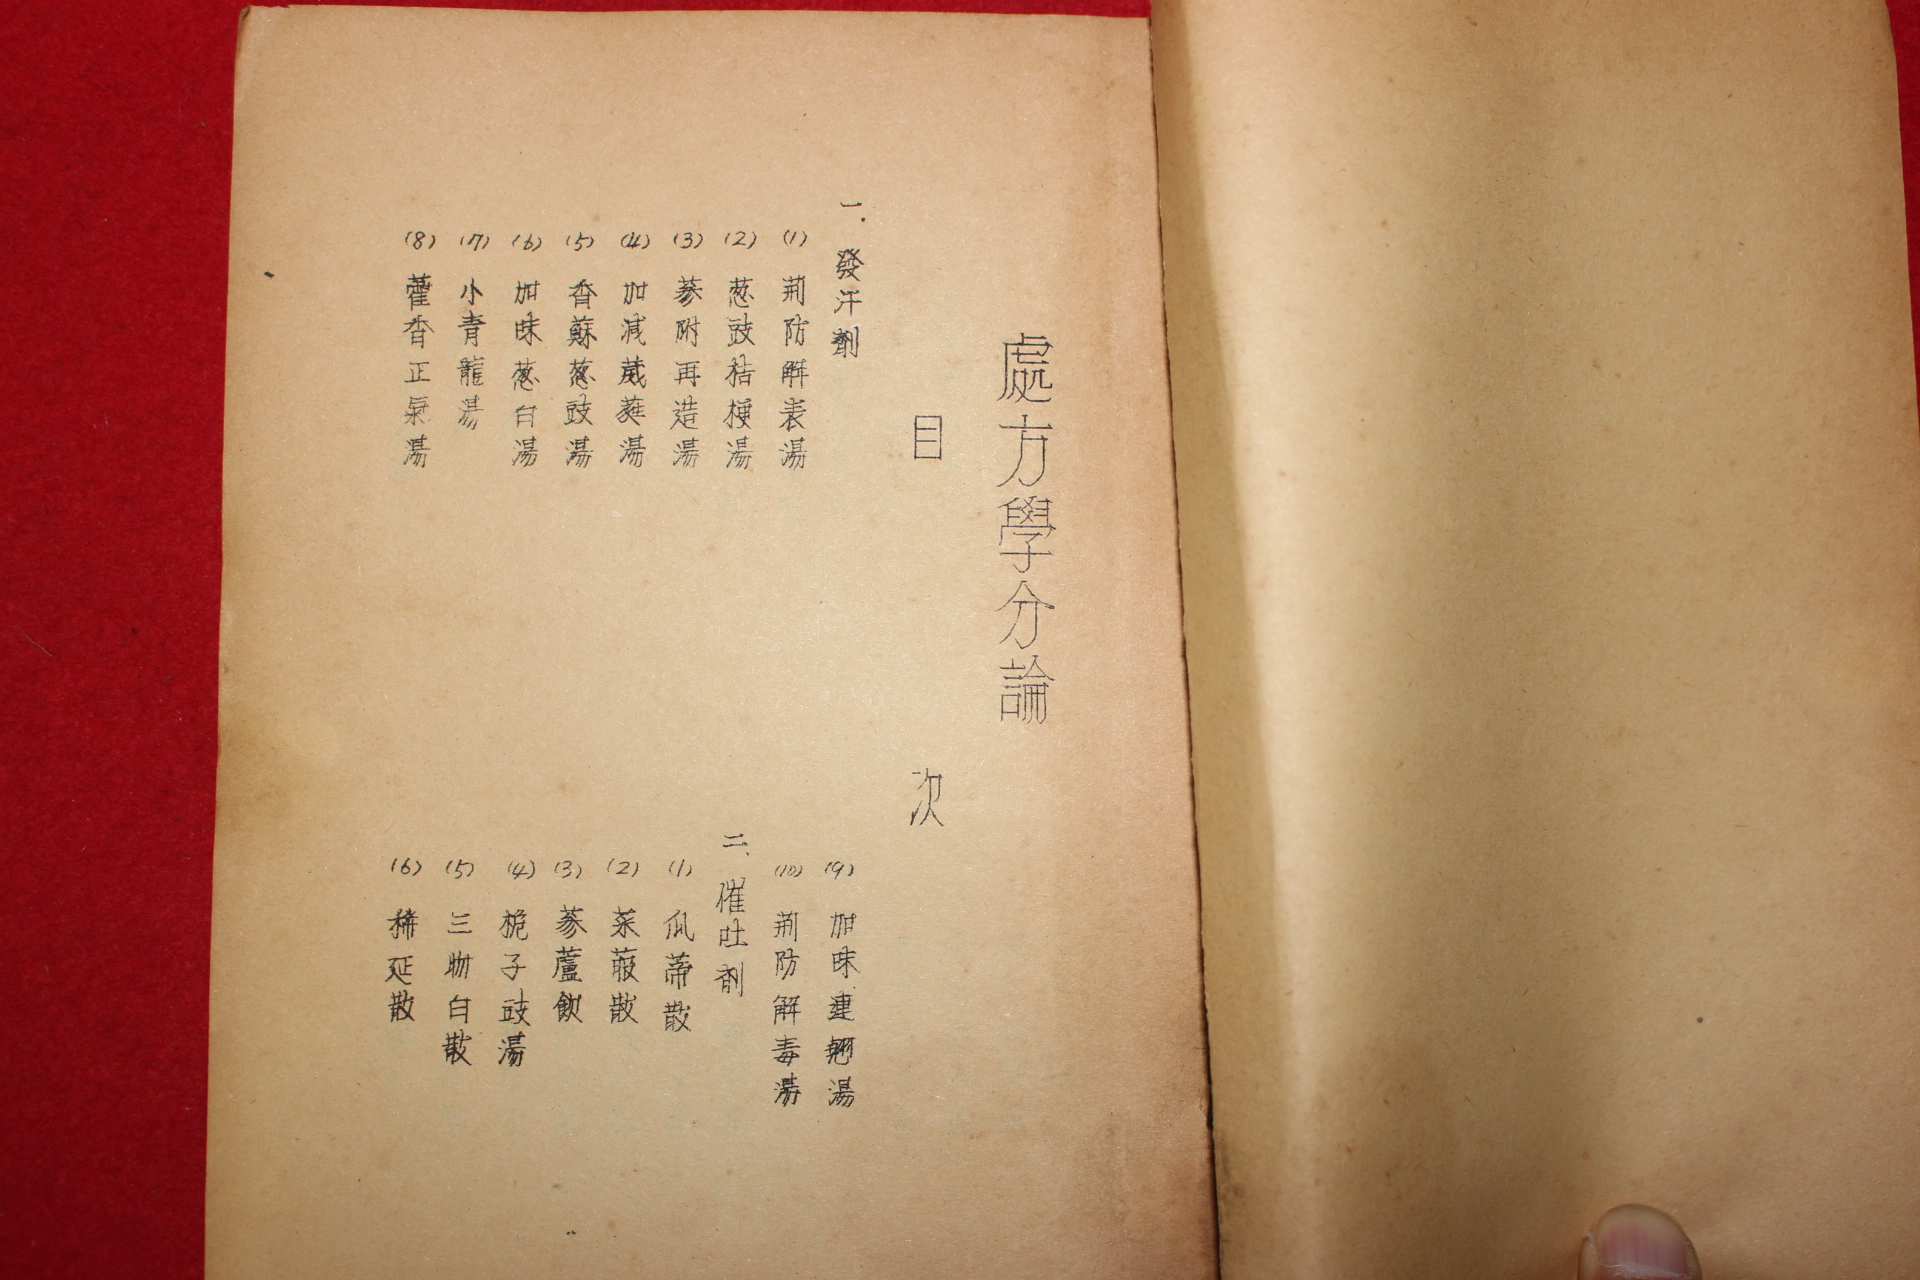 處方學分論
目次
一. 發汗劑
(1) 荊防解表湯
(2) 葱豉桔梗湯
(3) 蔘附再造湯
(4) 加減葳蕤湯
(5) 香蘇葱豉湯
(6) 加味葱白湯
(7) 小青龍湯
(8) 藿香正氣湯
(9) 加味連翹湯
(10) 荊防解毒湯
二. 催吐劑
(1) 瓜蒂散
(2) 菜菔散
(3) 蔘蘆飲
(4) 梔子豉湯
(5) 三物白散
(6) 稀延散